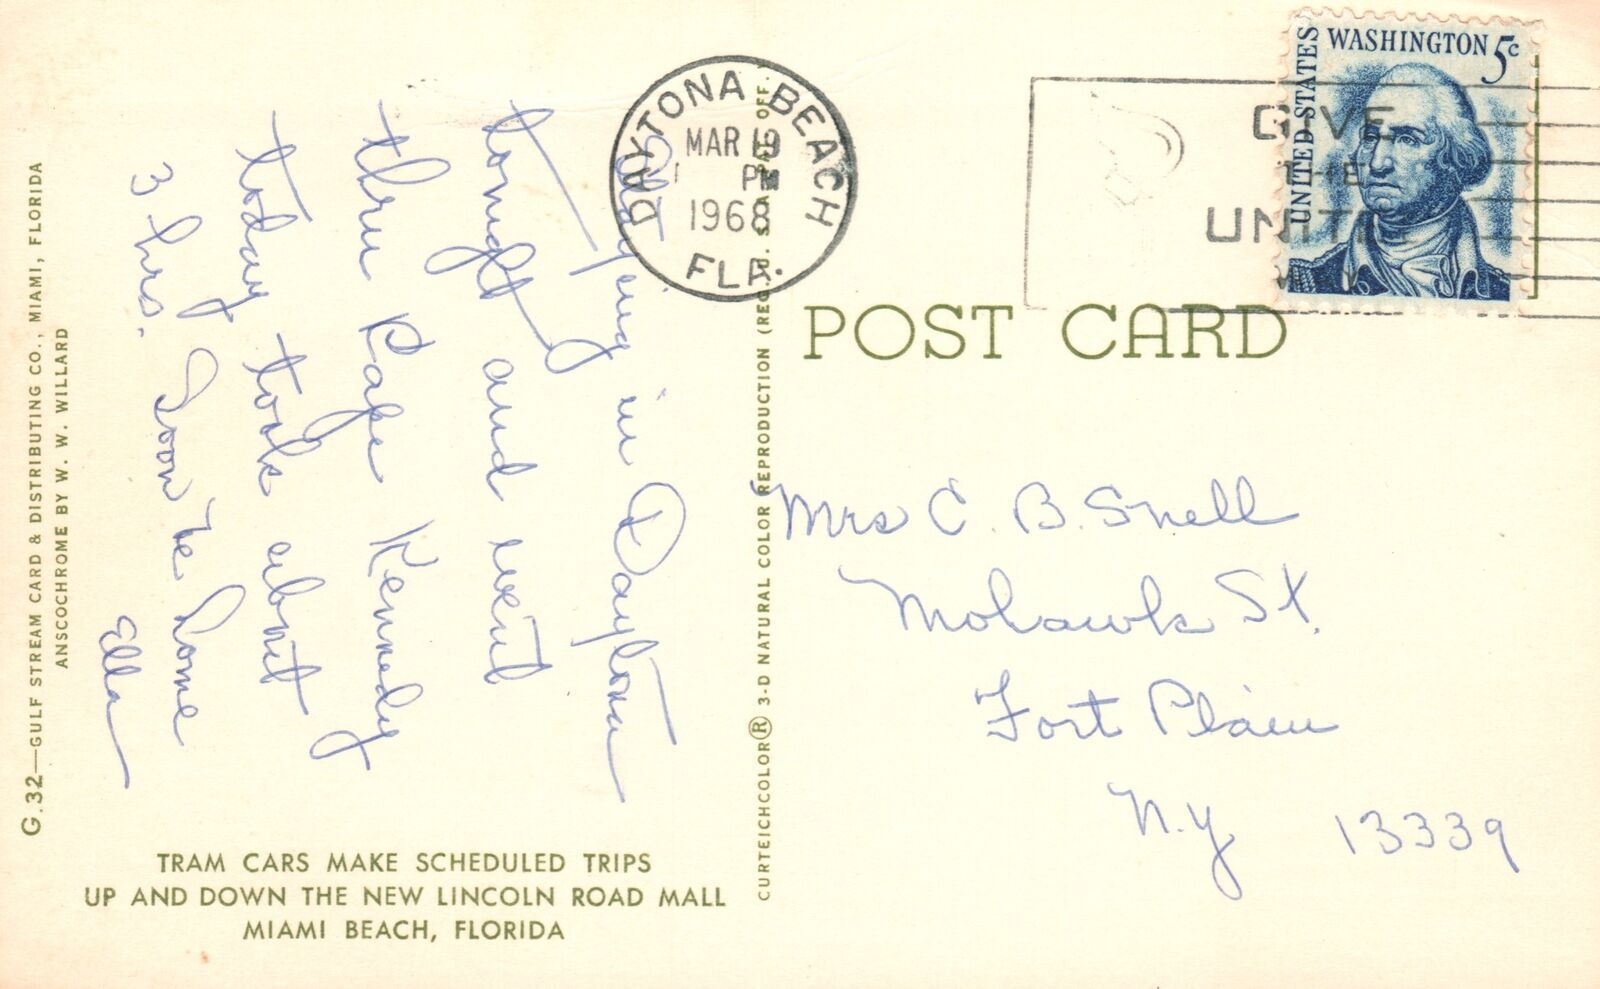 G.32—GULF STREAM CARD & DISTRIBUTING CO., MIAMI, FLORIDA
ANSCOCHROME BY W. W. WILLARD
Staying in Daytona
tonight and went
thru Cape Kennedy
today took about
3 hrs. Soon be home
Ella
TRAM CARS MAKE SCHEDULED TRIPS
UP AND DOWN THE NEW LINCOLN ROAD MALL
MIAMI BEACH, FLORIDA
CURTEICHCOLOR® 3-D NATURAL COLOR REPRODUCTION (REG. U. S. PAT. OFF.)
DAYTONA BEACH
MAR 19
PM
1968
FLA.
GIVE
THE
UNITED
WAY
UNITED STATES
WASHINGTON 5c
POST CARD
Mrs C. B. Snell
Mohawk St.
Fort Plain
N.Y 13339